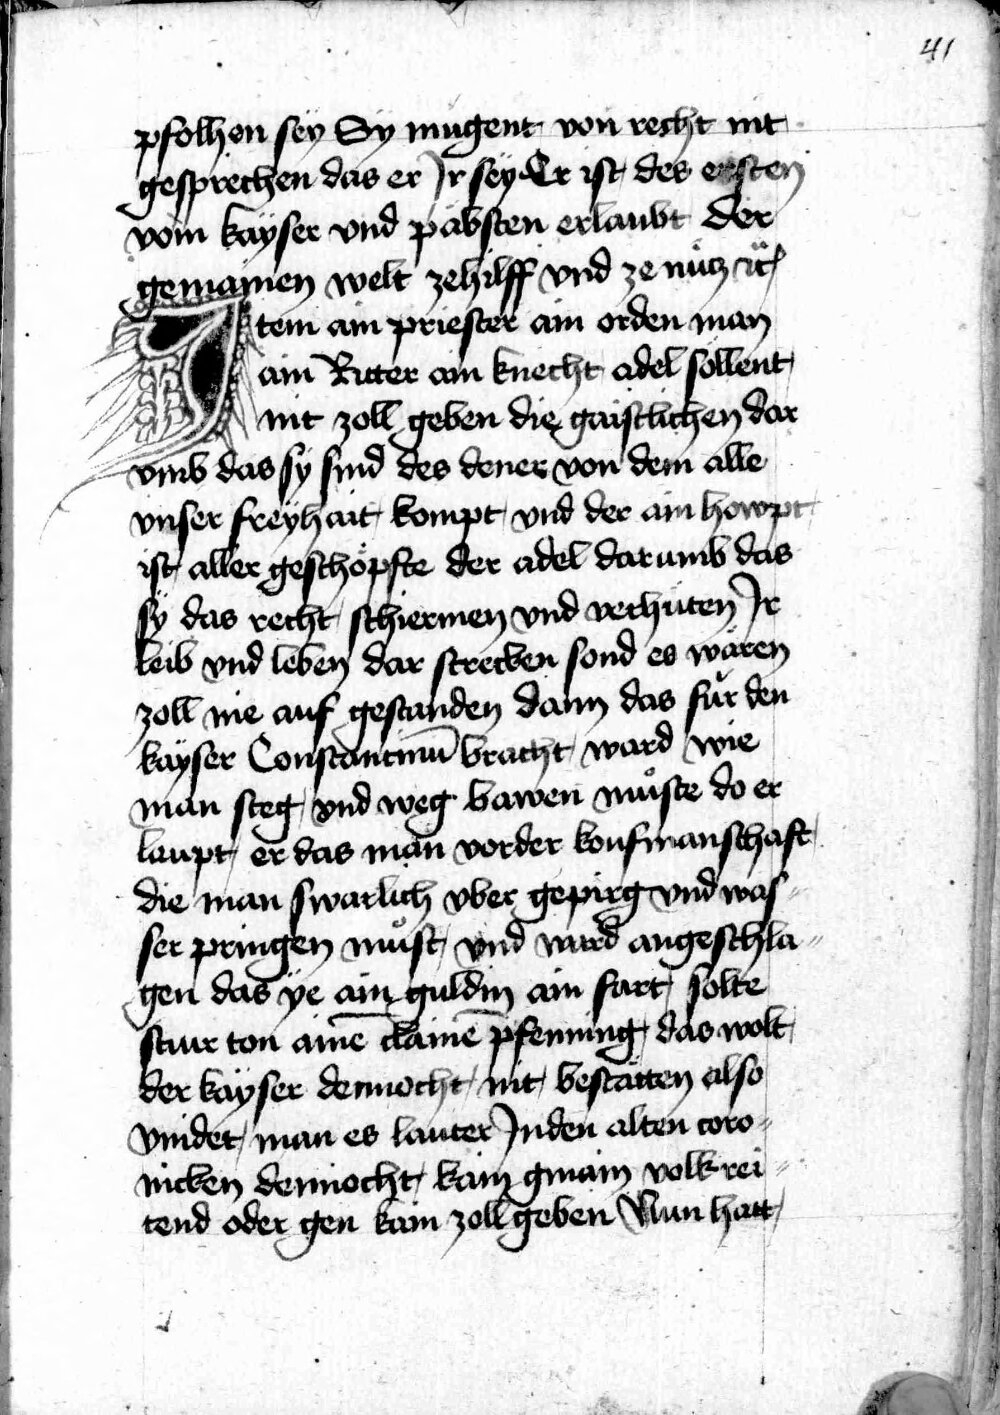 41
pfolhen sey Sy mugent von recht nit
gesprechen das er Jr sey Er ist des ersten
vom kayser vnd päbsten erlaubt Der
gemainen welt zehilff vnd ze nutz ꝛc
Jtem ain priester ain orden man
ain Ritter ain knecht adel söllent
nit zoll geben die gaistlichen dar
vmb das sy sind des dener von dem alle
vnser freyhait kompt vnd der ain howpt
ist aller geschöpfte der adel darumb das
sy das recht schiermen vnd verhüten Jr
leib vnd leben dar strecken sond es wären
zoll nie auf gestanden dann das für den
kayser Constantinū bracht ward wie
man steg vnd weg bawen můste do er
laupt er das man vorder koufmanschaft
die man swarlich vber gepirg vnd was-
ser pringen můst vnd ward angeschla-
gen das ye ain guldin ain fart solte
stiur ton ainē clainē pfenning das wolt
der kayser dennocht nit bestätten also
vindet man es lauter Jn den alten coro-
nicken dennocht kain gmain volk rei-
tend oder gen kain zoll geben Nun hatt